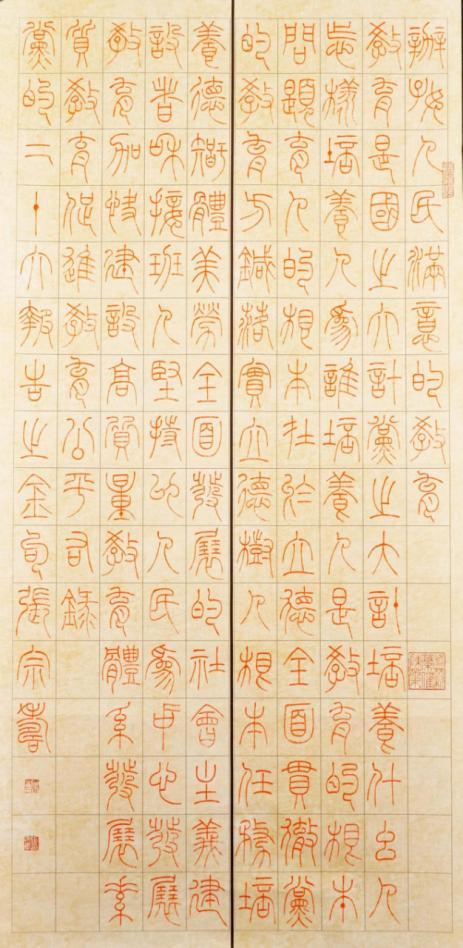 辦好人民滿意的教育
教育是國之大計黨之大計培養什么人
怎樣培養人爲誰培養人是教育的根本
問題育人的根本在於立德全面貫徹黨
的教育方鍼落實立德樹人根本任務培
養德智體美勞全面發展的社會主義建
設者和接班人堅持以人民爲中心發展
教育加快建設高質量教育體系發展素
質教育促進教育公平右錄
黨的二十大報告之金句張宗書